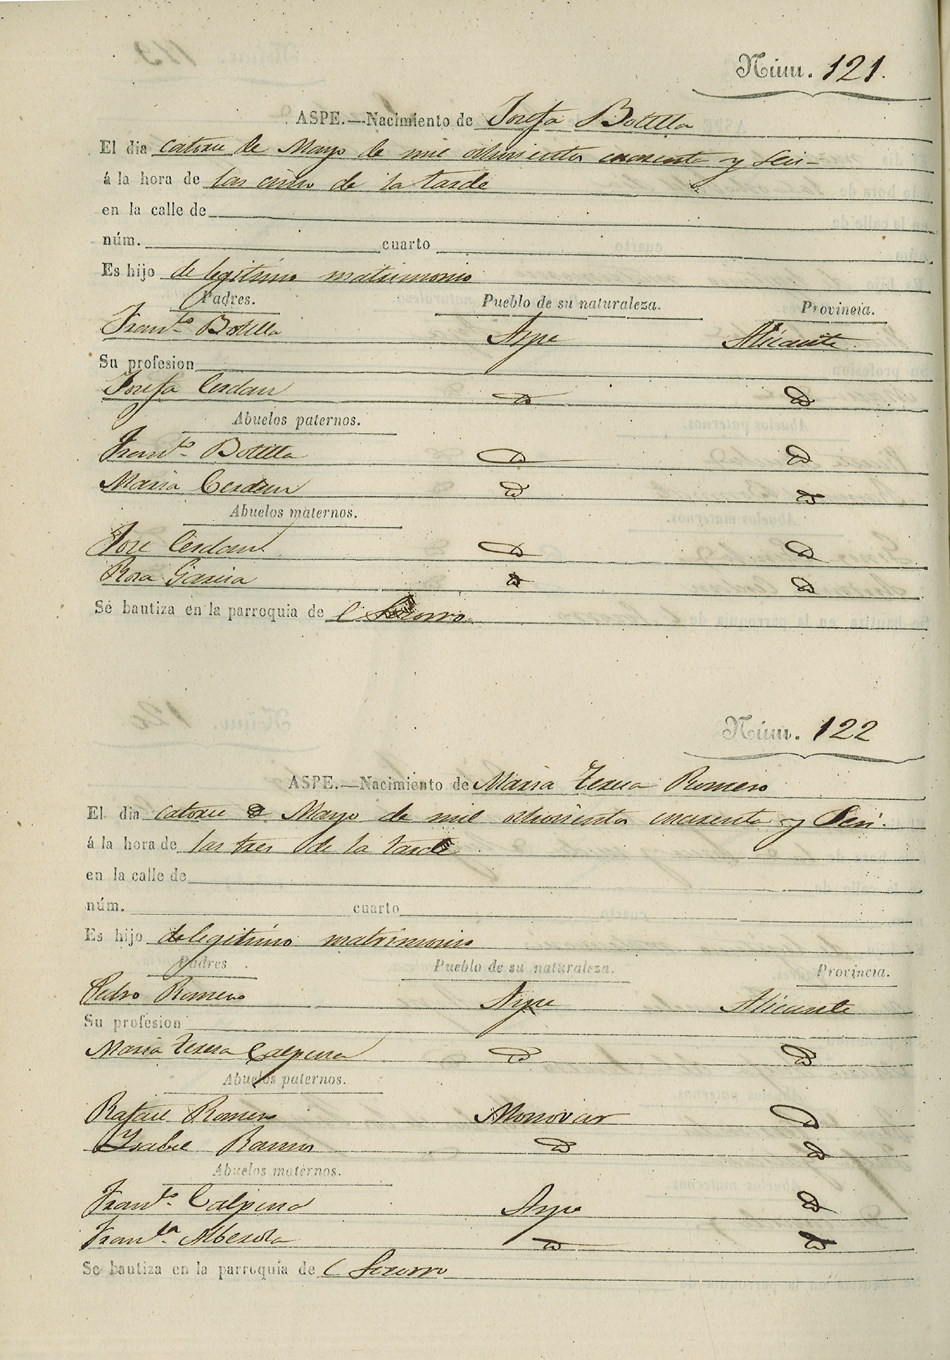 Núm. 121.
ASPE.—Nacimiento de Josefa Botella
El dia catorce de Mayo de mil ochocientos cuarenta y seis
á la hora de las cinco de la tarde
en la calle de
núm. cuarto
Es hijo de legitimo matrimonio
Padres. Pueblo de su naturaleza. Provincia.
Franco Botella Aspe Alicante
Su profesion
Josefa Cerdan D D
Abuelos paternos.
Franco Botella D D
Maria Cerdan D D
Abuelos maternos.
Jose Cerdan D D
Rosa Garcia D D
Se bautiza en la parroquia de l Socorro
Núm. 122
ASPE.—Nacimiento de Maria Teresa Romero
El dia catorce de Mayo de mil ochocientos cuarenta y Seis.
á la hora de las tres de la tarde
en la calle de
núm. cuarto
Es hijo de legitimo matrimonio
Padres Pueblo de su naturaleza. Provincia.
Pedro Romero Aspe Alicante
Su profesion
Maria Teresa Calpena D D
Abuelos paternos.
Rafael Romero Monovar D
Ysabel Ramos D D
Abuelos maternos.
Franco Calpena Aspe D
Franca Alberola D D
Se bautiza en la parroquia de l Socorro